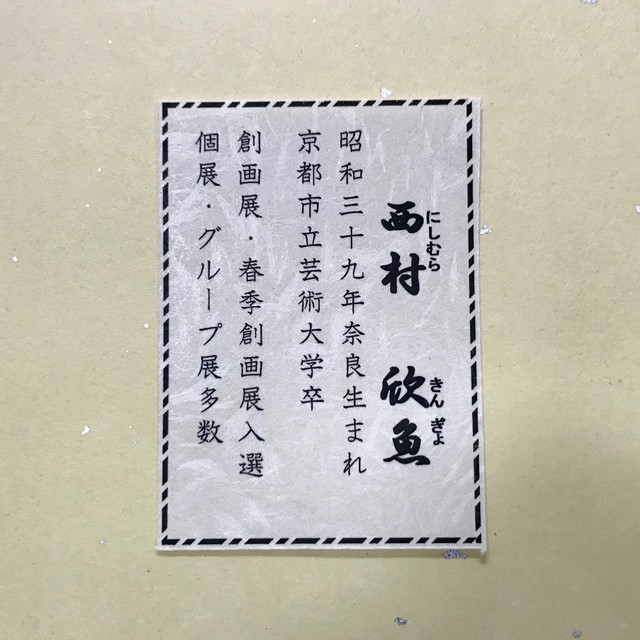 西村 欣魚
にしむら きんぎょ
昭和三十九年奈良生まれ
京都市立芸術大学卒
創画展・春季創画展入選
個展・グループ展多数